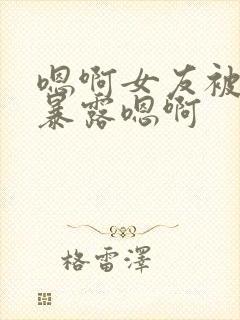 嗯啊女友被
暴露嗯啊
格雷澤